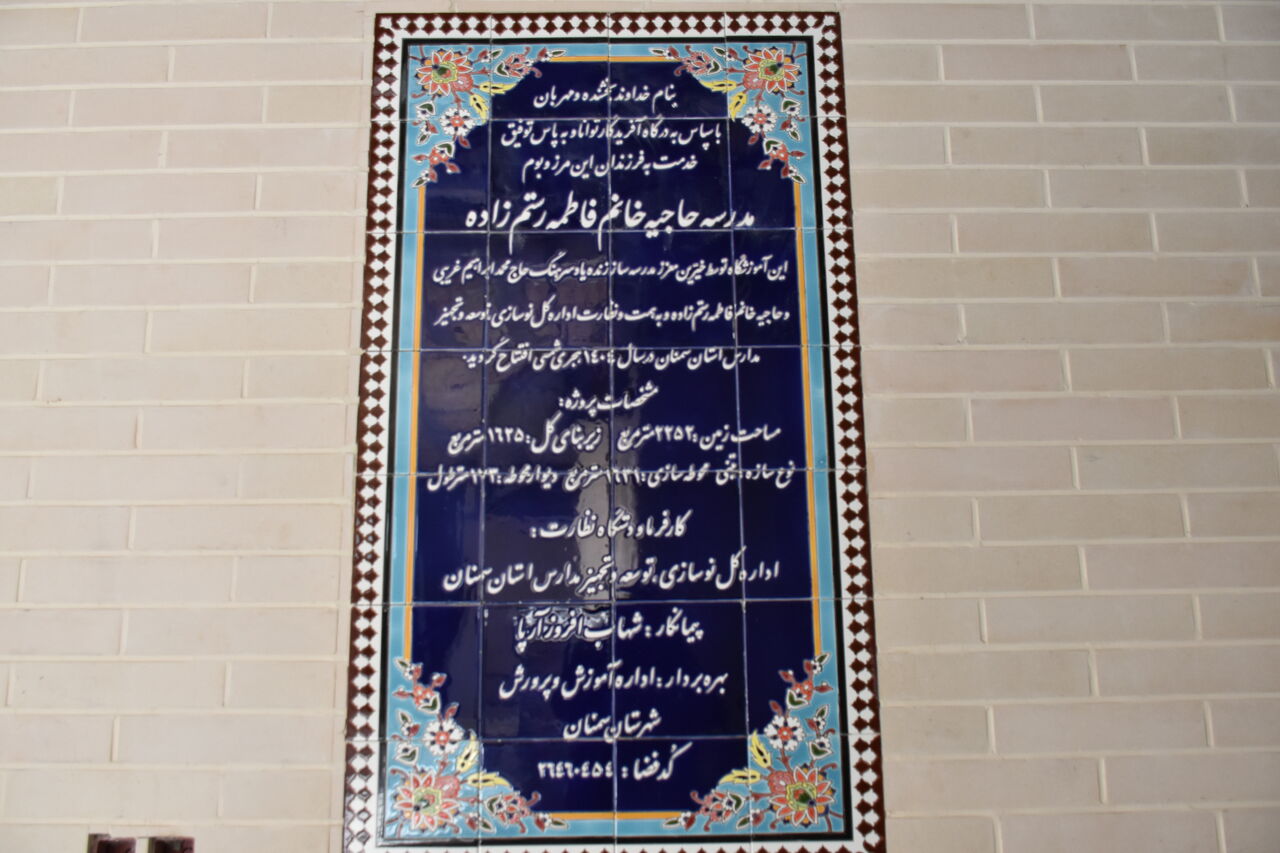 بنام خداوند بخشنده و مهربان
با سپاس به درگاه آفریدگار توانا و به پاس توفیق
خدمت به فرزندان این مرز و بوم
مدرسه حاجیه خانم فاطمه رستم زاده
این آموزشگاه توسط خیرین معزز مدرسه ساز زنده یاد سرهنگ حاج محمد ابراهیم غریبی
و حاجیه خانم فاطمه رستم زاده و به همت و نظارت اداره کل نوسازی، توسعه و تجهیز
مدارس استان سمنان در سال ۱۴۰۴ هجری شمسی افتتاح گردید.
مشخصات پروژه:
مساحت زمین: ۲۲۵۲ مترمربع زیربنای کل: ۱۶۲۵ مترمربع
نوع سازه: بتنی محوطه سازی: ۱۶۳۱ مترمربع دیوار محوطه: متر طول
کارفرما و دستگاه نظارت:
اداره کل نوسازی، توسعه و تجهیز مدارس استان سمنان
پیمانکار: شهاب افروز آرپا
بهره بردار: اداره آموزش و پرورش
شهرستان سمنان
کد فضا: ۲۶۴۶۰۴۵۴